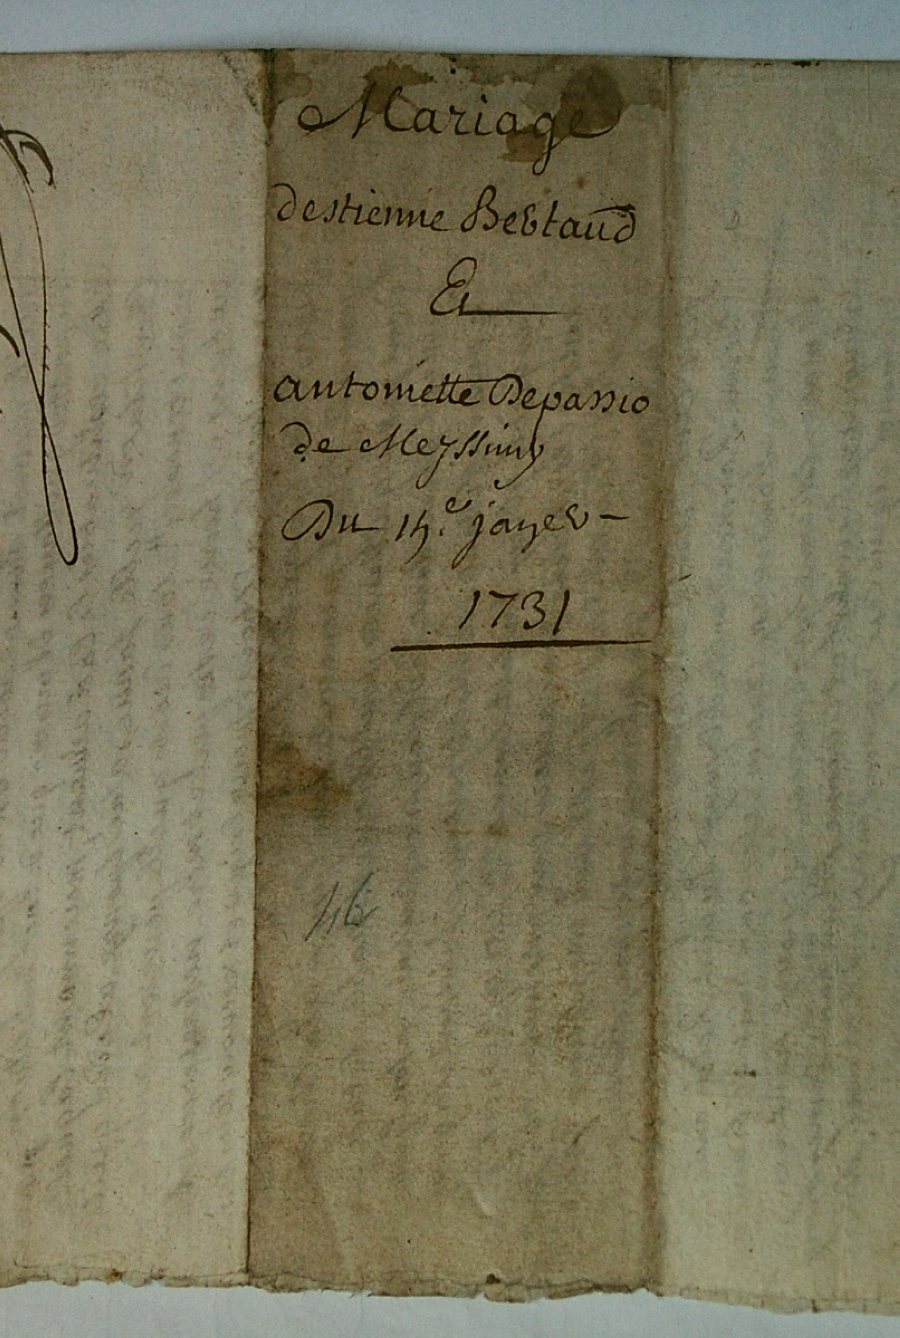 Mariage
destienne Bertaud
Et
antoniette Depassio
de Meyssimy
Du 14.e janer
1731
46